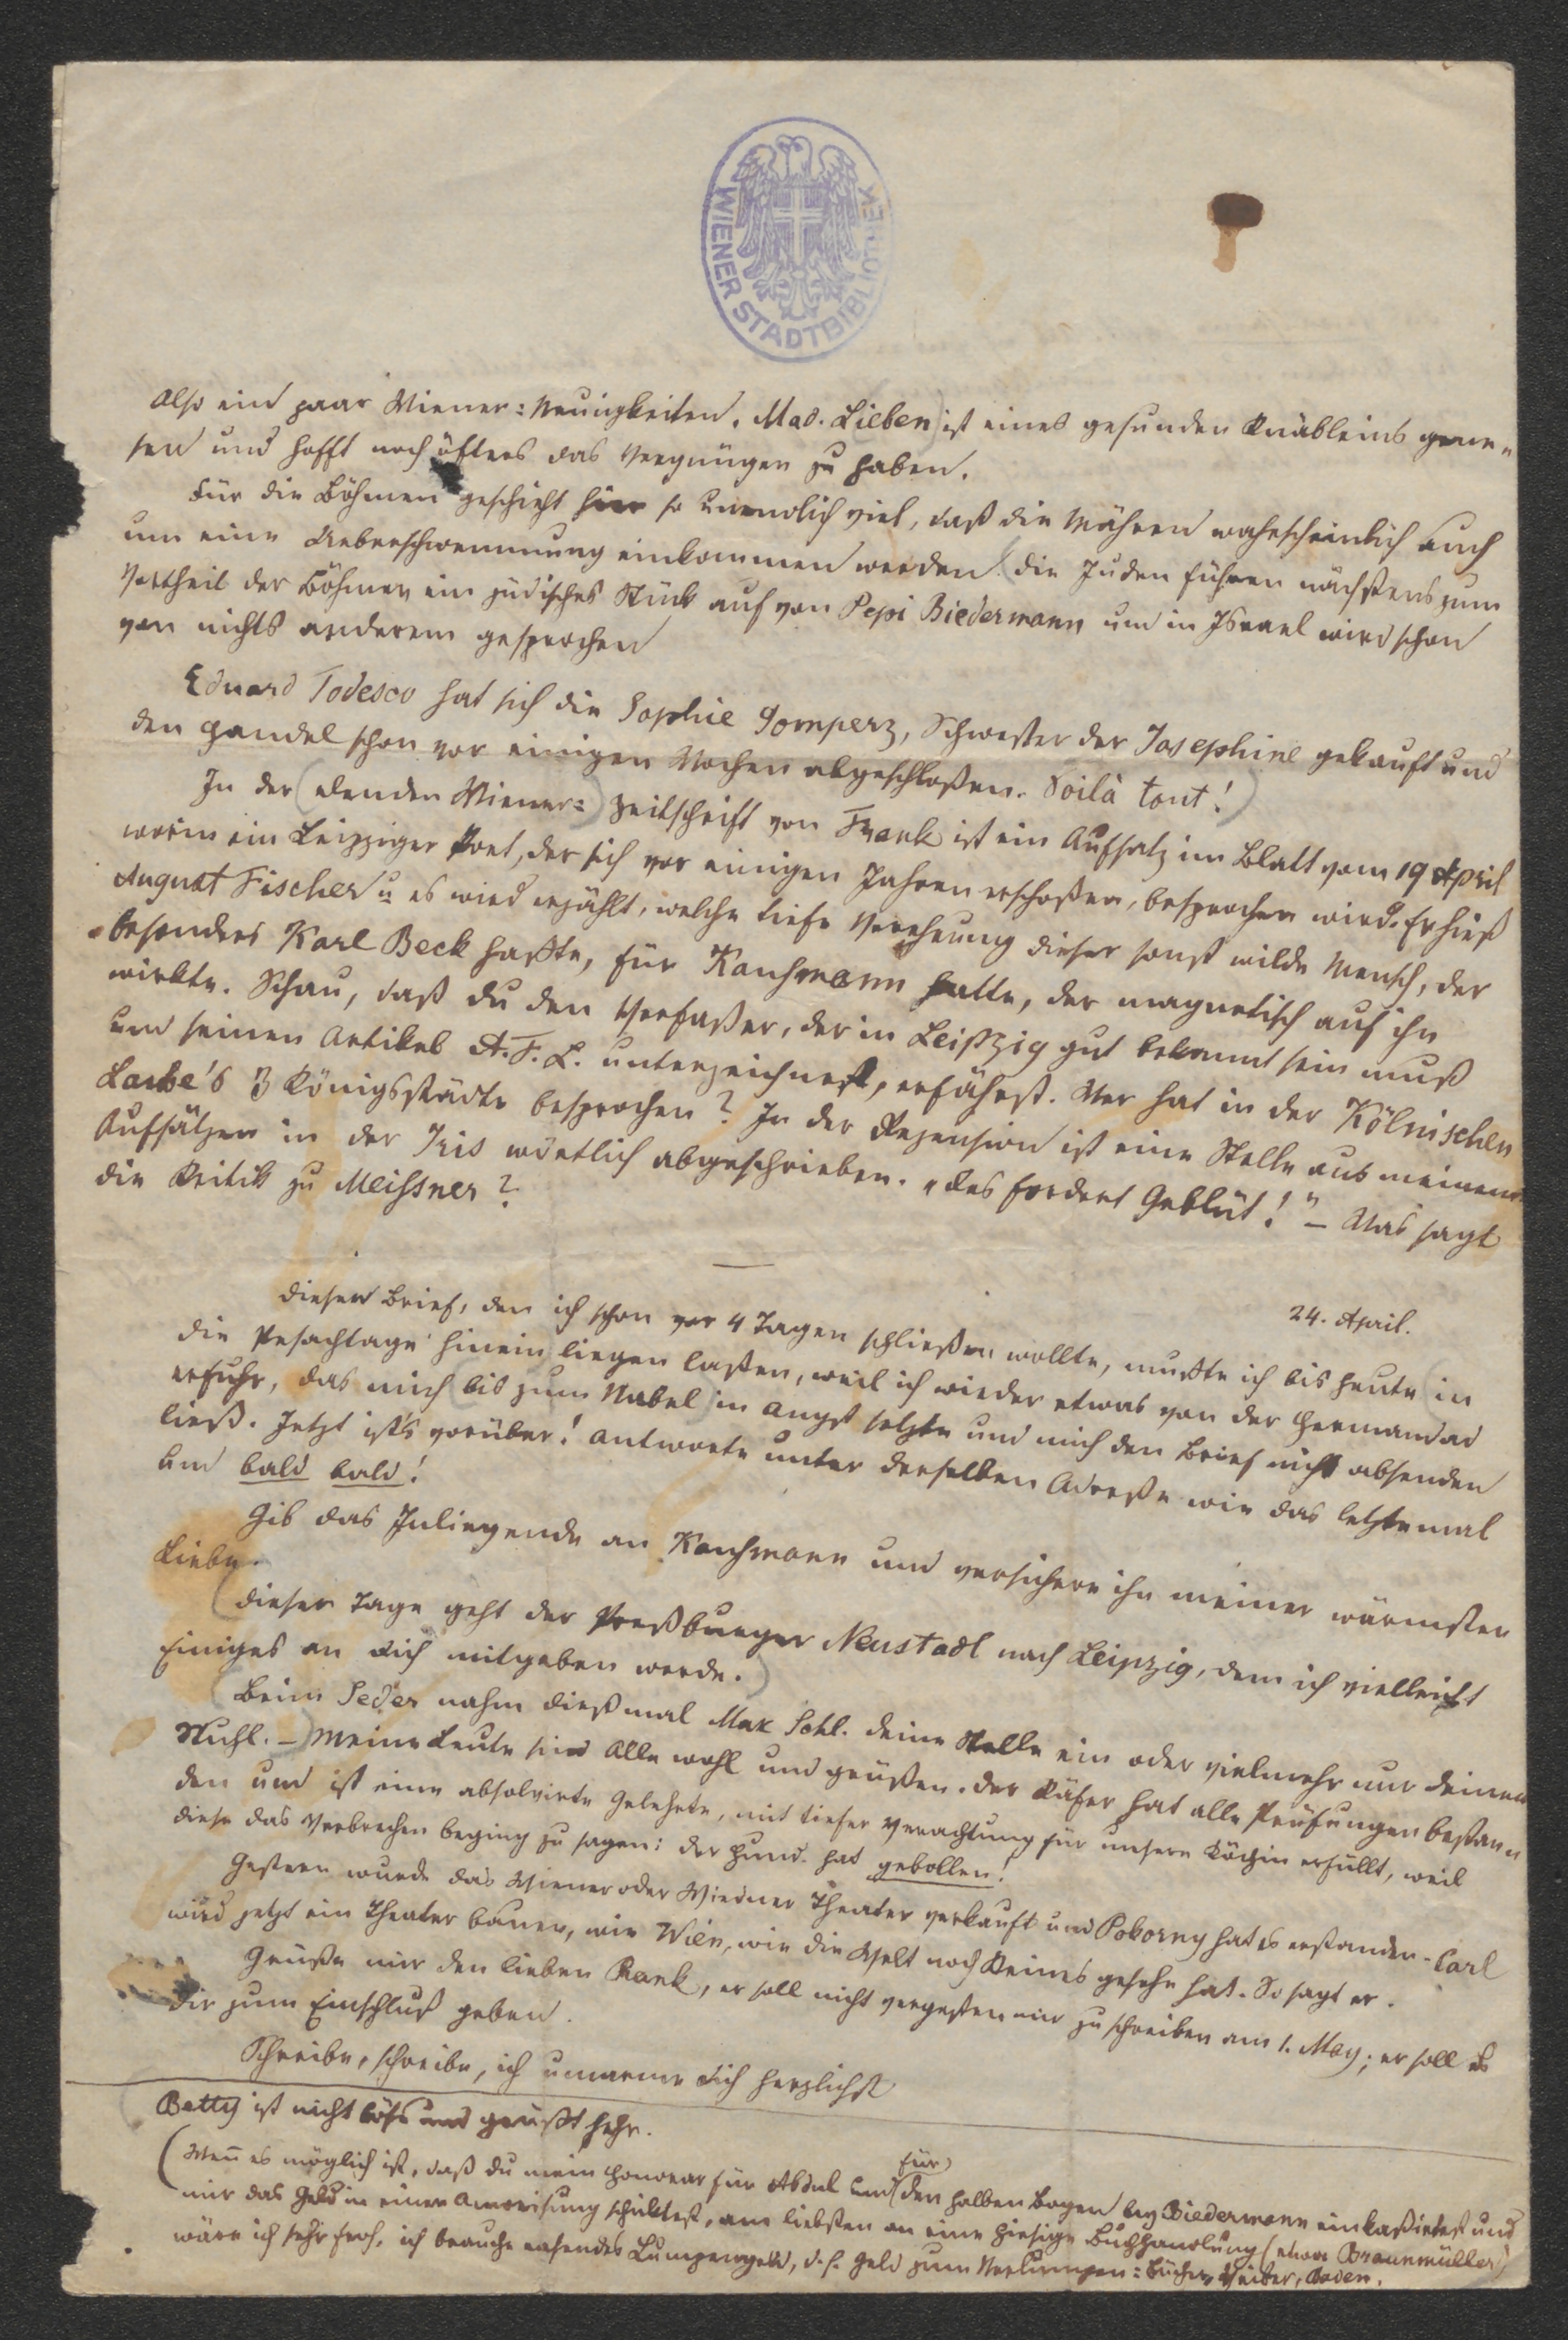 WIENER STADTBIBLIOTHEK
Also ein paar Wiener=Neuigkeiten. Mad. Lieben ist eines gesunden Knäbleins gene=
sen und hofft noch öfters das Vergnügen zu haben.
Für die Böhmen geschieht hier so unendlich viel, daß die Mähren wahrscheinlich auch
um eine Ueberschwemmung einkommen werden. (die Juden führen nächstens zum
Vortheil der Böhmen ein jüdisches Stück auf von Pepi Biedermann und in Israel wird schon
von nichts anderem gesprochen
Eduard Todesco hat sich die Sophie Gomperz, Schwester der Josephine gekauft und
den Handel schon vor einigen Wochen abgeschloßen. Voilà tout!)
In der (elenden Wiener=) Zeitschrift von Frank ist ein Aufsatz im Blatt vom 19 April
worin ein Leipziger Poet, der sich vor einigen Jahren erschoßen, besprochen wird. Er hieß
August Fischer u es wird erzählt, welche tiefe Verehrung dieser sonst wilde Mensch, der
besonders Karl Beck haßte, für Kaufmann hatte, der magnetisch auf ihn
wirkte. Schau, daß du den Verfaßer, der in Leipzig gut bekannt sein muß
und seinen Artikel A. F. L. unterzeichnet, erfährst. Wer hat in der Kölnischen
Laube's 3 Königsstädte besprochen? In der Rezension ist eine Stelle aus meinem
Aufsätzen in der Iris wörtlich abgeschrieben. „Das fordert Geblüt!" – Was sagt
die Kritik zu Meißner?
24. April.
Diesen Brief, den ich schon vor 4 Tagen schließen wollte, mußte ich bis heute (in
die Pesachtage hinein) liegen laßen, weil ich wieder etwas von der Hermandad
erfuhr, das mich (bis zum Nabel) in Angst setzte und mich den Brief nicht absenden
ließ. Jetzt ists vorüber! Antworte unter derselben Adreße wie das letztemal
und bald bald!
Gib das Inliegende an Kaufmann und versichere ihn meiner wärmsten
Liebe.
(Dieser Tage geht der Preßburger Neustadl nach Leipzig, dem ich vielleicht
Einiges an dich mitgeben werde.)
(Beim Seder nahm dießmal Max Schl. deine Stelle ein oder vielmehr nur deinen
Stuhl. –) Meine Leute sind Alle wohl und grüßen. Der Käfer hat alle Prüfungen bestan=
den und ist eine absolvirte Gelehrte, mit tiefer Verachtung für unsere Köchin erfüllt, weil
diese das Verbrechen beging zu sagen: der Hund hat gebollen!
Gestern wurde das Wiener oder Wiedner Theater verkauft und Pokorny hat es erstanden. Carl
wird jetzt ein Theater bauen, wie Wien, wie die Welt noch Keines gesehn hat. So sagt er.
Grüße mir den lieben Rank, er soll nicht vergeßen mir zu schreiben am 1. May; er soll es
dir zum Einschluß geben.
Schreibe, schreibe, ich umarme dich herzlichst
Betty ist nicht bös und grüßt sehr.
(Wenn es möglich ist, daß du mein Honorar für Abdul und (für) den halben Bogen bey Biedermann einkaßirtest und
mir das Geld in einer Anweisung schicktest, am liebsten an eine hiesige Buchhandlung (etwa Braunmüller)
wäre ich sehr froh, ich brauche rasendes Lumpengeld, d. h. Geld zum Verlumpen: Bücher, Weiber, Baden.